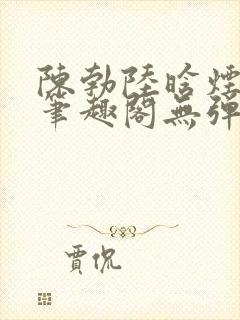 陳勃陸晗煙
筆趣閣無彈
賈侃